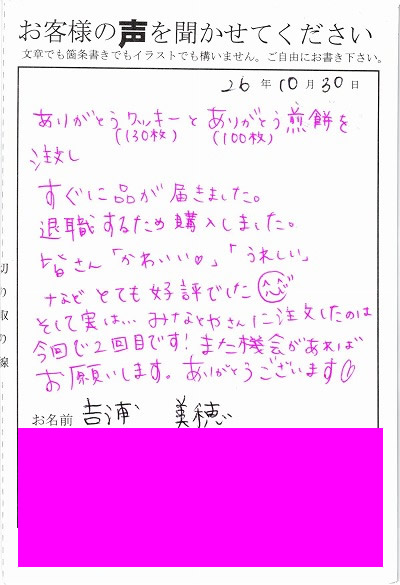 お客様の声を聞かせてください
文章でも箇条書きでもイラストでも構いません。ご自由にお書き下さい。
26年10月30日
ありがとうクッキーと ありがとう煎餅を
(130枚) (100枚)
注文し
すぐに品が届きました。
退職するため購入しました。
皆さん「かわいい♡」「うれしい」
などとても好評でした
そして実は…みなとやさんに注文したのは
今回で2回目です！また機会があれば
お願いします。ありがとうございます
お名前 吉浦 美穂
切り取り線